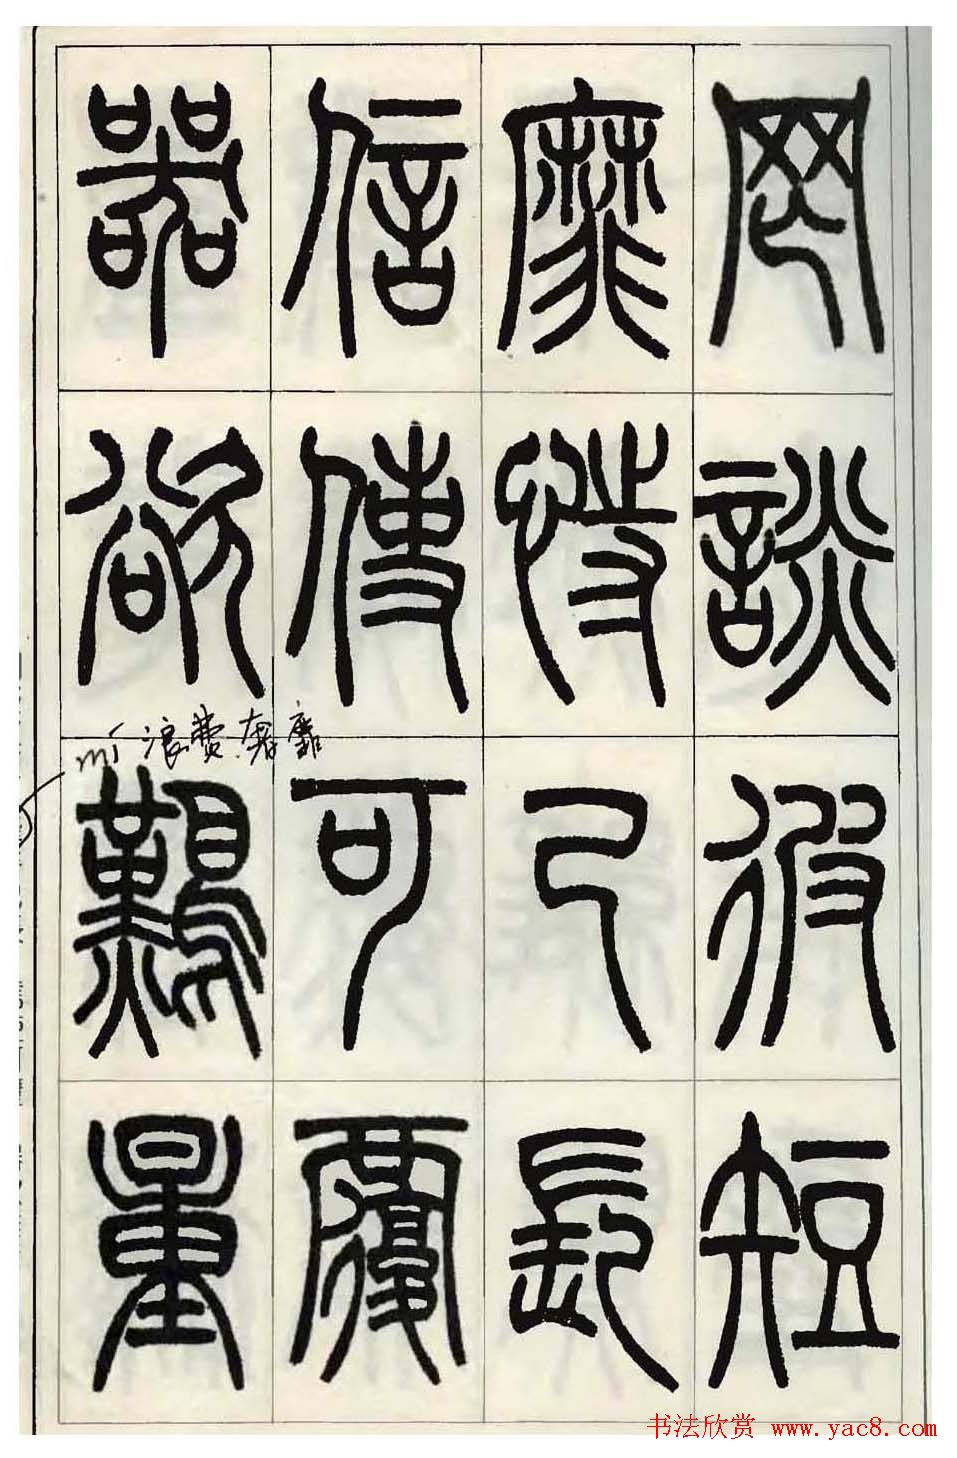 罔談彼短
靡恃己長
信使可覆
器欲難量
浪费.奢靡
书法欣赏 www.yac8.com